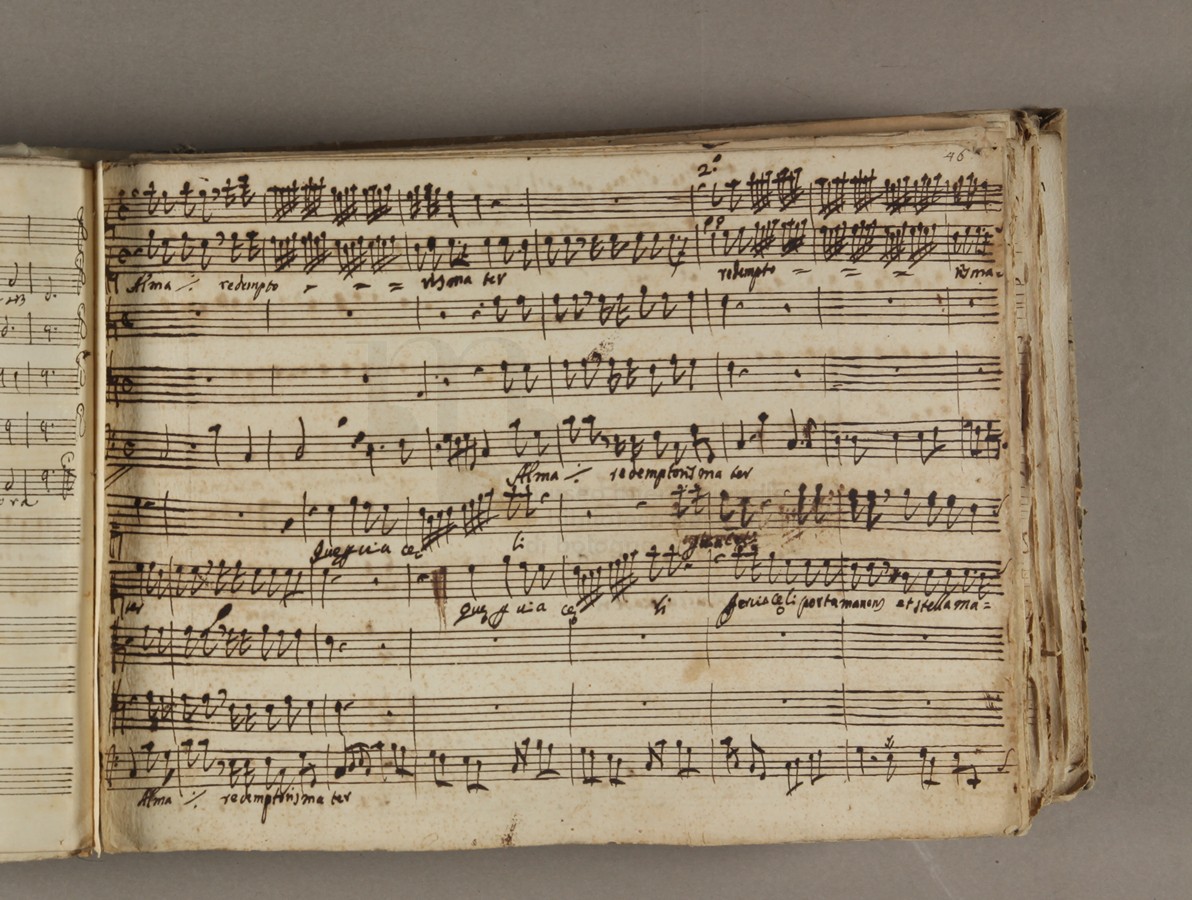 46
2.
Alma ·/· redempto - - = risma ter redempto = = = risma=
Alma ·/· redemptorisma ter
que p uia ce li
ter que p uia ce li peruia celi porta manens et stella ma=
Alma ·/· redemptorisma ter